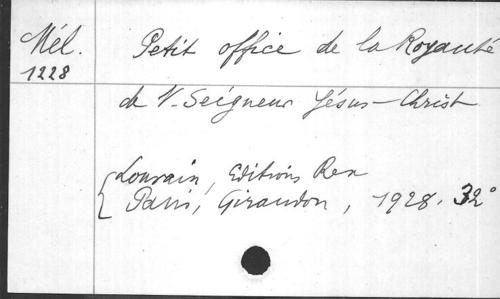 Mél.
1228
Petit office de la Royauté
de N. Seigneur Jésus-Christ
Louvain, Editions Rex
Paris, Giraudon, 1928. 32°